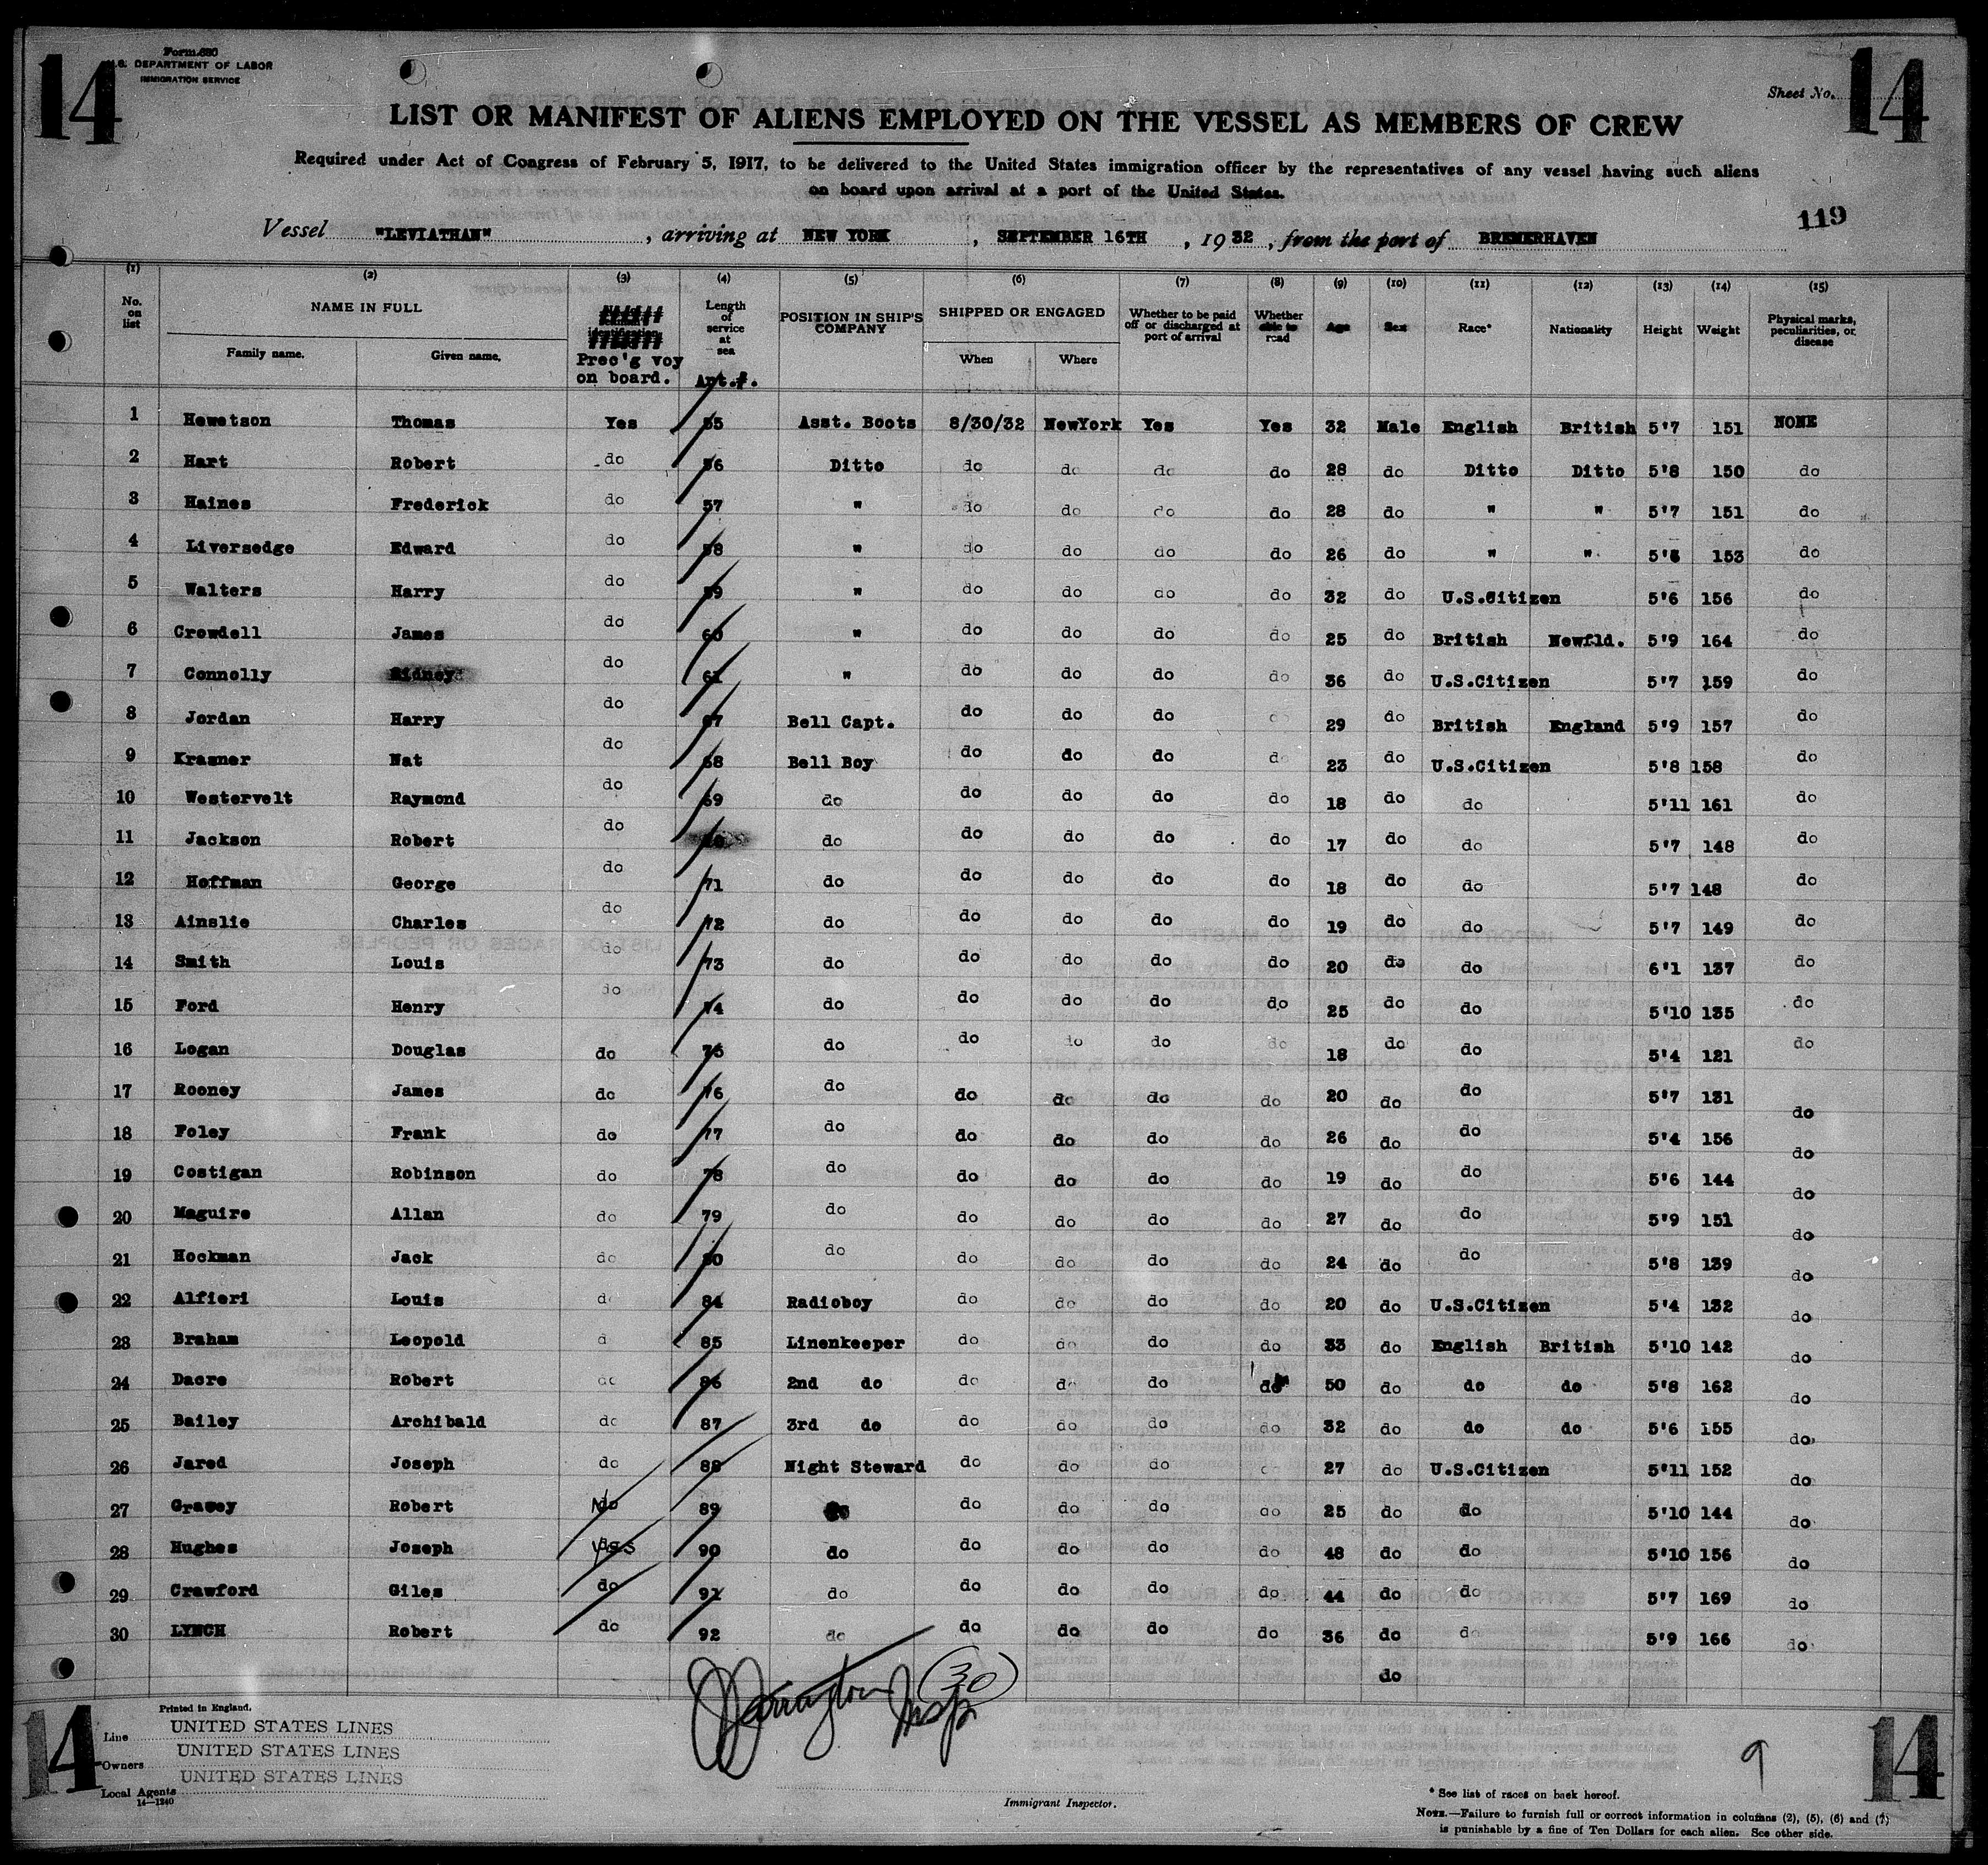 14
Form 680
U.S. DEPARTMENT OF LABOR
IMMIGRATION SERVICE
Sheet No. 14
LIST OR MANIFEST OF ALIENS EMPLOYED ON THE VESSEL AS MEMBERS OF CREW
Required under Act of Congress of February 5, 1917, to be delivered to the United States immigration officer by the representatives of any vessel having such aliens
on board upon arrival at a port of the United States.
119
Vessel "LEVIATHAN", arriving at NEW YORK, SEPTEMBER 16TH, 1932, from the port of BREMERHAVEN
(1) (2) (3) (4) (5) (6) (7) (8) (9) (10) (11) (12) (13) (14) (15)
No. on list NAME IN FULL Family name. Given name. identification Prec'g voy on board. Length of service at sea Art.#. POSITION IN SHIP'S COMPANY SHIPPED OR ENGAGED When Where Whether to be paid off or discharged at port of arrival Whether able to read Age Sex Race* Nationality Height Weight Physical marks, peculiarities, or disease
1 Hewetson Thomas Yes 55 Asst. Boots 8/30/32 NewYork Yes Yes 32 Male English British 5'7 151 NONE
2 Hart Robert do 56 Ditto do do do do 28 do Ditto Ditto 5'8 150 do
3 Haines Frederick do 57 " do do do do 28 do " " 5'7 151 do
4 Liversedge Edward do 58 " do do do do 26 do " " 153 do
5 Walters Harry do 59 " do do do do 32 do U.S.Citizen 5'6 156 do
6 Crowdell James do 60 " do do do do 25 do British Newfld. 5'9 164 do
7 Connolly Sidney do 61 " do do do do 36 do U.S.Citizen 5'7 159 do
8 Jordan Harry do 67 Bell Capt. do do do 29 do British England 5'9 157 do
9 Krasner Nat do 68 Bell Boy do do do 23 do U.S.Citizen 5'8 158 do
10 Westervelt Raymond do 69 do do do do do 18 do do 5'11 161 do
11 Jackson Robert do do do do do do 17 do do 5'7 148 do
12 Hoffman George do 71 do do do do do 18 do do 5'7 148 do
13 Ainslie Charles do 72 do do do do do 19 do do 5'7 149 do
14 Smith Louis do 73 do do do do do 20 do do 6'1 137 do
15 Ford Henry do 74 do do do do do 25 do do 5'10 135 do
16 Logan Douglas do 75 do do do do do 18 do do 5'4 121 do
17 Rooney James do 76 do do do do do 20 do do 5'7 131 do
18 Foley Frank do 77 do do do do do 26 do do 5'4 156 do
19 Costigan Robinson do 78 do do do do do 19 do do 5'6 144 do
20 Maguire Allan do 79 do do do do do 27 do do 5'9 151 do
21 Hockman Jack do 80 do do do do do 24 do do 5'8 139 do
22 Alfieri Louis do 84 Radioboy do do do do 20 do U.S.Citizen 5'4 132 do
23 Braham Leopold d 85 Linenkeeper do do do do 33 do English British 5'10 142 do
24 Dacre Robert do 86 2nd do do do do do 50 do do do 5'8 162 do
25 Bailey Archibald do 87 3rd do do do do do 32 do do do 5'6 155 do
26 Jared Joseph do 88 Night Steward do do do do 27 do U.S.Citizen 5'11 152 do
27 Gravey Robert No 89 do do do do do 25 do do 5'10 144 do
28 Hughes Joseph Yes 90 do do do do do 48 do do 5'10 156 do
29 Crawford Giles do 91 do do do do do 44 do do 5'7 169 do
30 LYNCH Robert do 92 do do do do do 36 do do 5'9 166 do
do
(30)
Insp.
14
Printed in England.
Line UNITED STATES LINES
Owners UNITED STATES LINES
Local Agents UNITED STATES LINES
14—1240
Immigrant Inspector.
9
14
* See list of races on back hereof.
NOTE.—Failure to furnish full or correct information in columns (2), (5), (6) and (7)
is punishable by a fine of Ten Dollars for each alien. See other side.